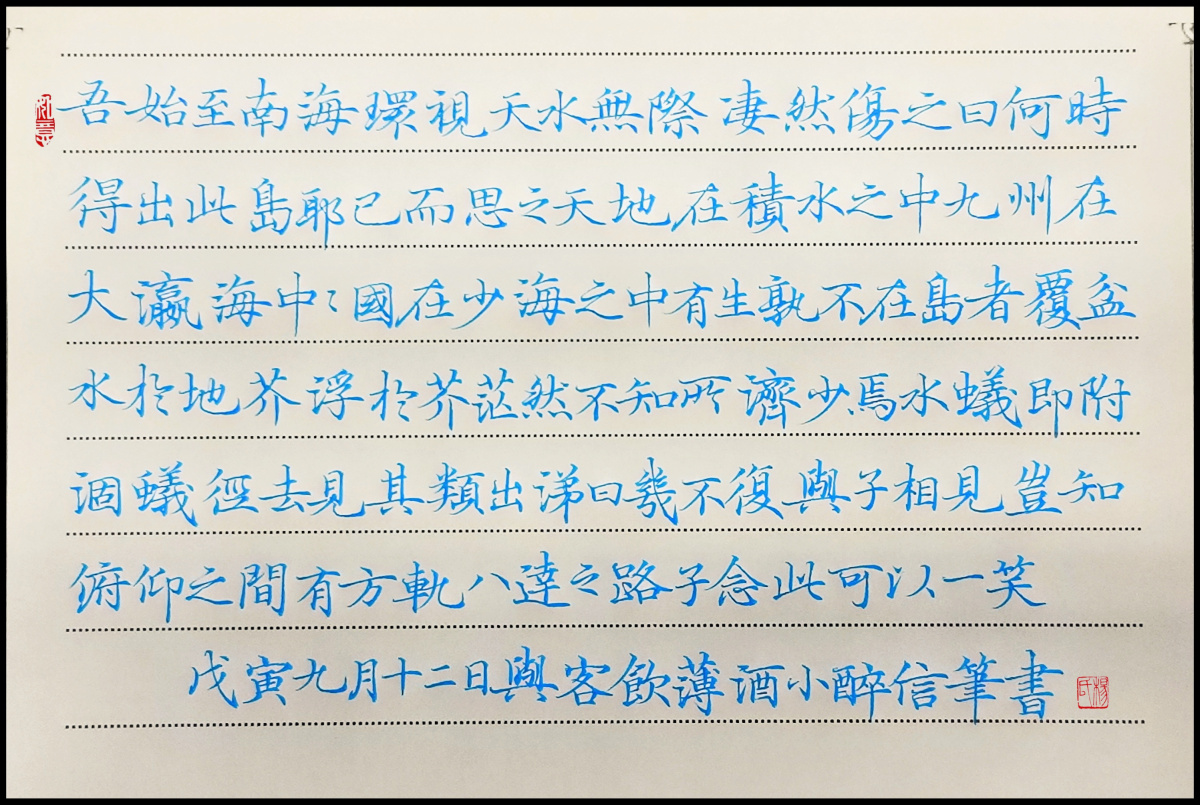 吾始至南海環視天水無際凄然傷之曰何時
得出此島耶已而思之天地在積水之中九州在
大瀛海中〻國在少海之中有生孰不在島者覆盆
水於地芥浮於芥茫然不知所濟少焉水蟻即附
涸蟻徑去見其類出涕曰幾不復與子相見豈知
俯仰之間有方軌八達之路子念此可以一笑
戊寅九月十二日與客飲薄酒小醉信筆書
楊氏